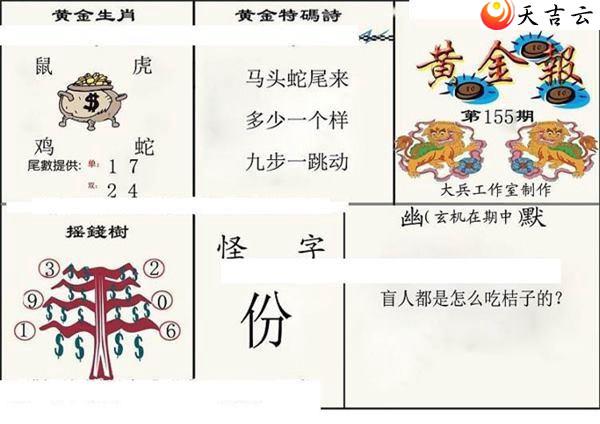 黄金生肖
鼠 虎
鸡 蛇
尾數提供：单：1 7
双：2 4
黄金特碼詩
马头蛇尾来
多少一个样
九步一跳动
天吉云
黄金報
第155期
大兵工作室制作
摇錢樹
3 2
9 0
1 6
$
怪 字
份
幽(玄机在期中)默
盲人都是怎么吃桔子的？